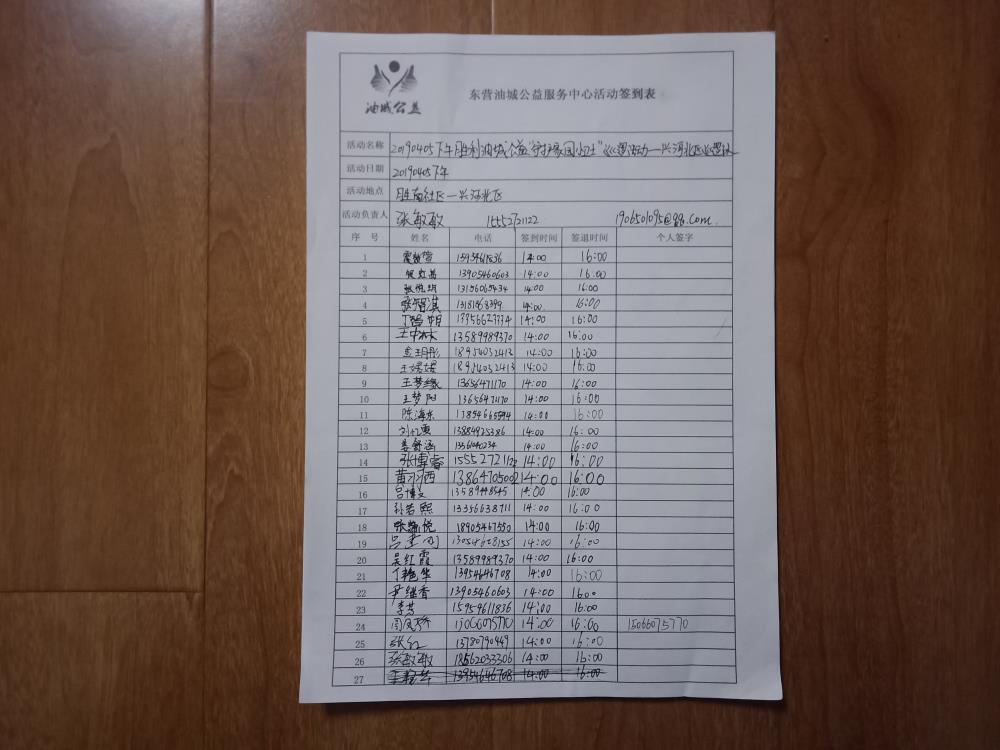 油城公益
东营油城公益服务中心活动签到表
活动名称 20190405下午胜利油城公益"守护家园小卫士" 活动一兴河北区
活动日期 20190405下午
活动地点 胜南社区一兴河北区
活动负责人 张敏敏 15552721122 1906501095@qq.com.
序 号 姓名 电话 签到时间 签退时间 个人签字
1 14:00 16:00
2 13905460603 14:00 16:00
3 13156065434 14:00 16:00
4 张智淇 14:00 16:00
5 14:00 16:00
6 王中林 13589989370 14:00 16:00
7 18954032413 14:00 16:00
8 王媛媛 18954032413 14:00 16:00
9 王梦缘 13656471170 14:00 16:00
10 王梦阳 13656471170 14:00 16:00
11 陈海东 14:00 16:00
12 13884925386 14:00 16:00
13 姜舒涵 14:00 16:00
14 张博睿 15552721122 14:00 16:00
15 黄羽西 13864705002 14:00 16:00
16 吕博文 14:00 16:00
17 孙若熙 13356638711 14:00 16:00
18 18905467550 14:00 16:00
19 13054628155 14:00 16:00
20 吴红霞 13589989370 14:00 16:00
21 丁艳华 13954646708 14:00 16:00
22 尹继香 13905460603 14:00 16:00
23 李芳 14:00 16:00
24 周凤娇 15066075770 14:00 16:00 15066075770
25 张红 13780790449 14:00 16:00
26 张敏敏 18562033306 14:00 16:00
27 13954646708 14:00 16:00